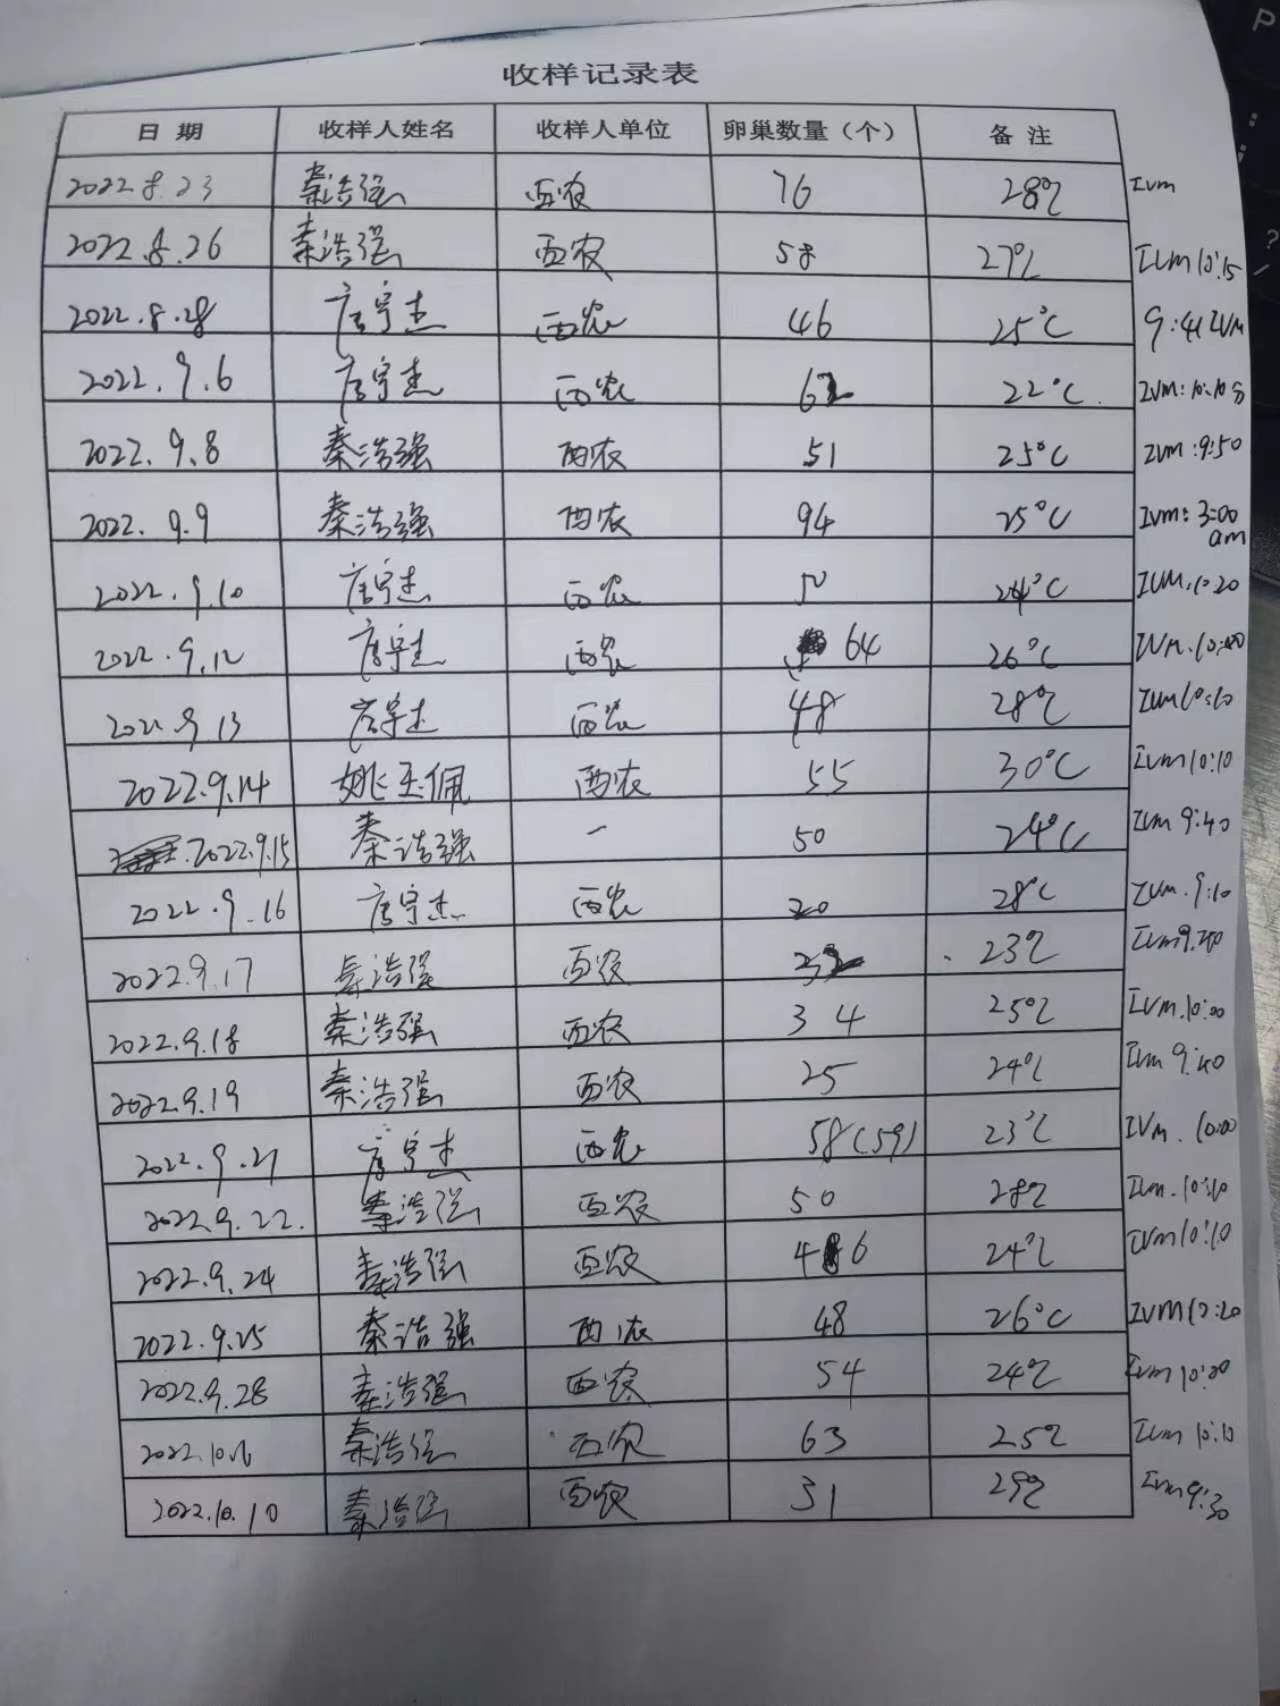 收样记录表
日期 收样人姓名 收样人单位 卵巢数量（个） 备注
2022.8.23 秦浩强 西农 76 28℃ IVM
2022.8.26 秦浩强 西农 58 27℃ IVM 10:15
2022.8.28 唐宇杰 西农 46 25℃ 9:41 IVM
2022.9.6 唐宇杰 西农 62 22℃ IVM:10:10
2022.9.8 秦浩强 西农 51 25℃ IVM:9:50
2022.9.9 秦浩强 西农 94 25℃ IVM:3:00 am
2022.9.10 唐宇杰 西农 50 24℃ IVM.10:20
2022.9.12 唐宇杰 西农 64 26℃ IVM.10:00
2022.9.13 唐宇杰 西农 48 28℃ IVM 10:10
2022.9.14 姚玉佩 西农 55 30℃ IVM 10:10
2022.9.15 秦浩强 — 50 24℃ IVM 9:40
2022.9.16 唐宇杰 西农 20 28℃ IVM.9:10
2022.9.17 秦浩强 西农 32 23℃ IVM 9:40
2022.9.18 秦浩强 西农 34 25℃ IVM.10:00
2022.9.19 秦浩强 西农 25 24℃ IVM 9:40
2022.9.21 唐宇杰 西农 58(59) 23℃ IVM. 10:00
2022.9.22. 秦浩强 西农 50 28℃ IVM.10:10
2022.9.24 秦浩强 西农 46 24℃ IVM 10:10
2022.9.25 秦浩强 西农 48 26℃ IVM 12:20
2022.9.28 秦浩强 西农 54 24℃ IVM
2022.10.6 秦浩强 西农 63 25℃ IVM 10:10
2022.10.10 秦浩强 西农 31 29℃ IVM 9:30